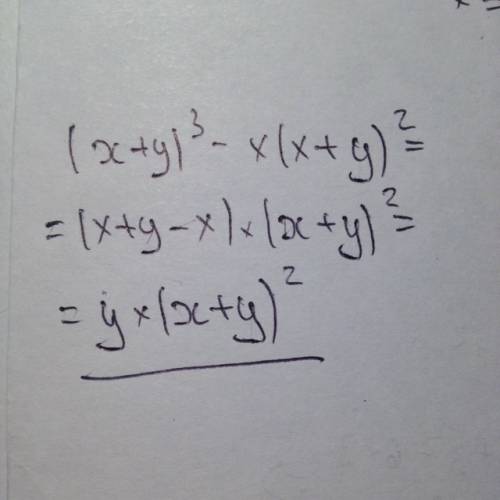 x =
(x+y)³ - x(x+y)² =
= (x+y-x) × (x+y)² =
= y × (x+y)²